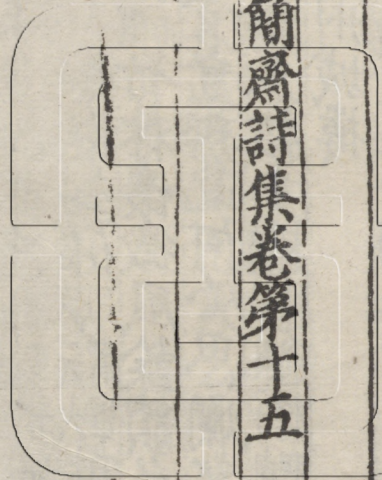 簡齋詩集卷第十五